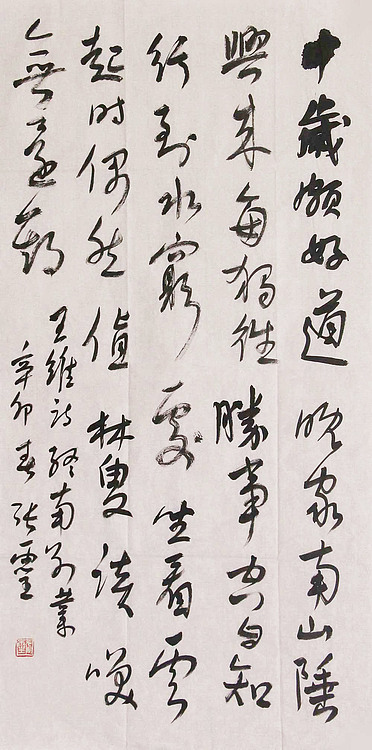 中歲頗好道晚家南山陲
興来每獨往勝事空自知
行到水窮處坐看雲
起时偶然值林叟談笑
無還期
王維詩終南別業
辛卯春張